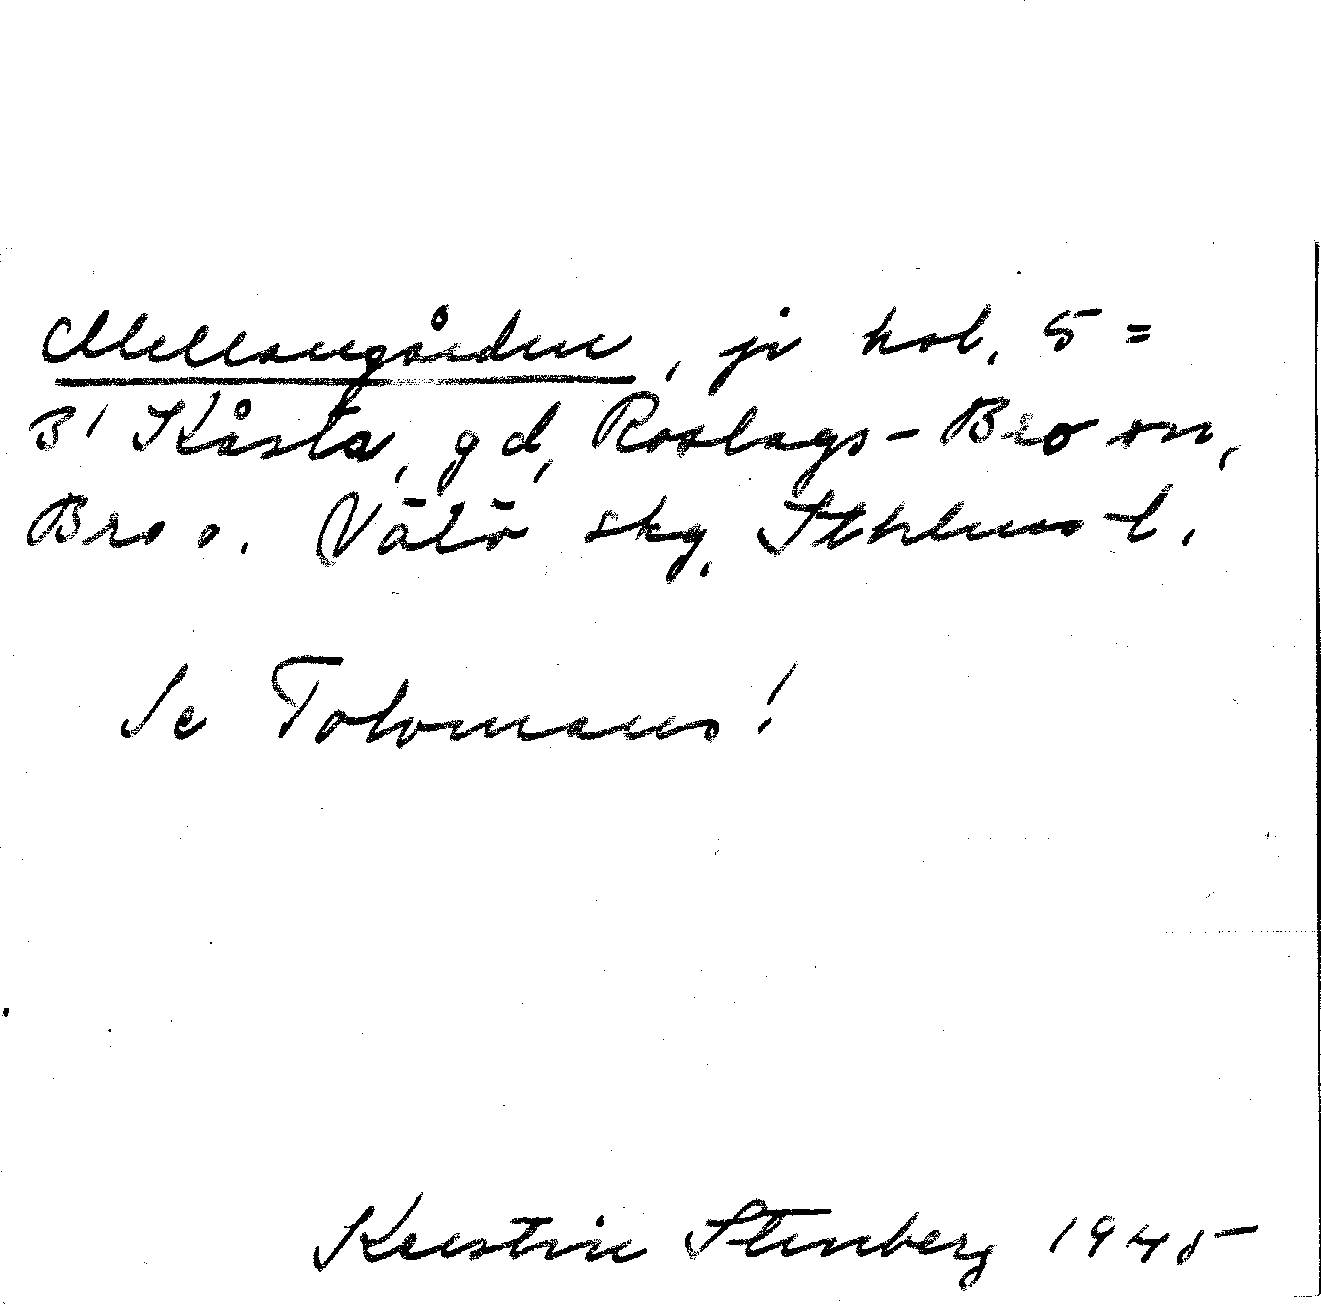 Mellangården, ji kol. 5 =
3' Kårsta, gd, Roslags-Bro sn,
Bro o. Vätö skg, Sthlms l.
Se Tolvmans!
Kerstin Stenberg 1945